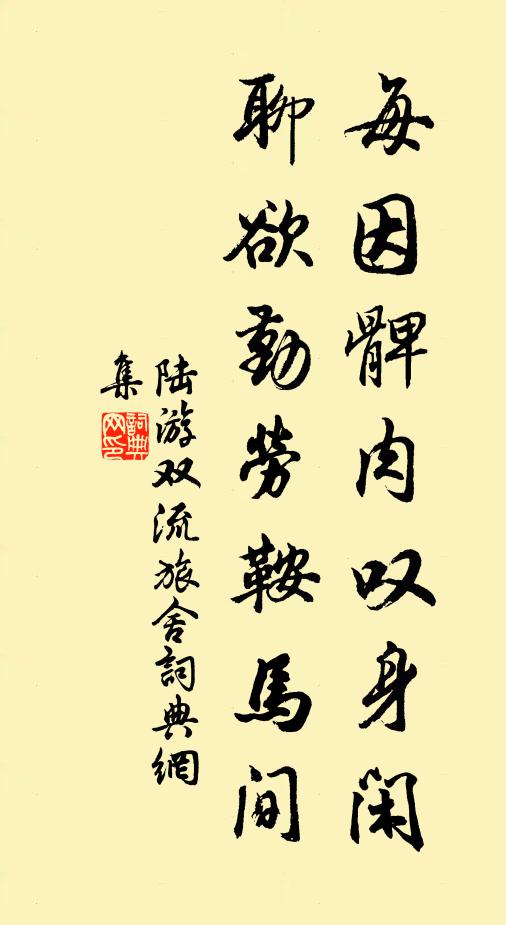 每因髀肉叹身闲
聊欲勤劳鞍馬间
陆游双流旅舍詞典網
集
詞典网印